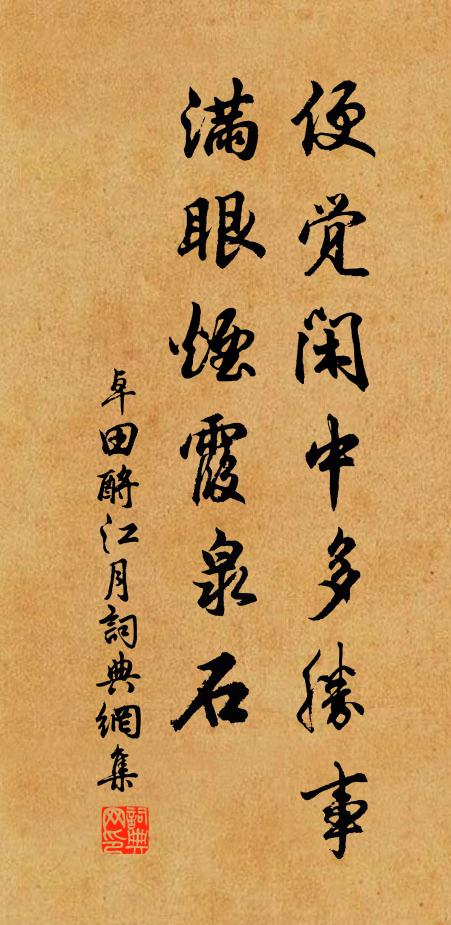 便觉闲中多勝事
滿眼煙霞泉石
卓田酹江月詞典網集
詞典网印